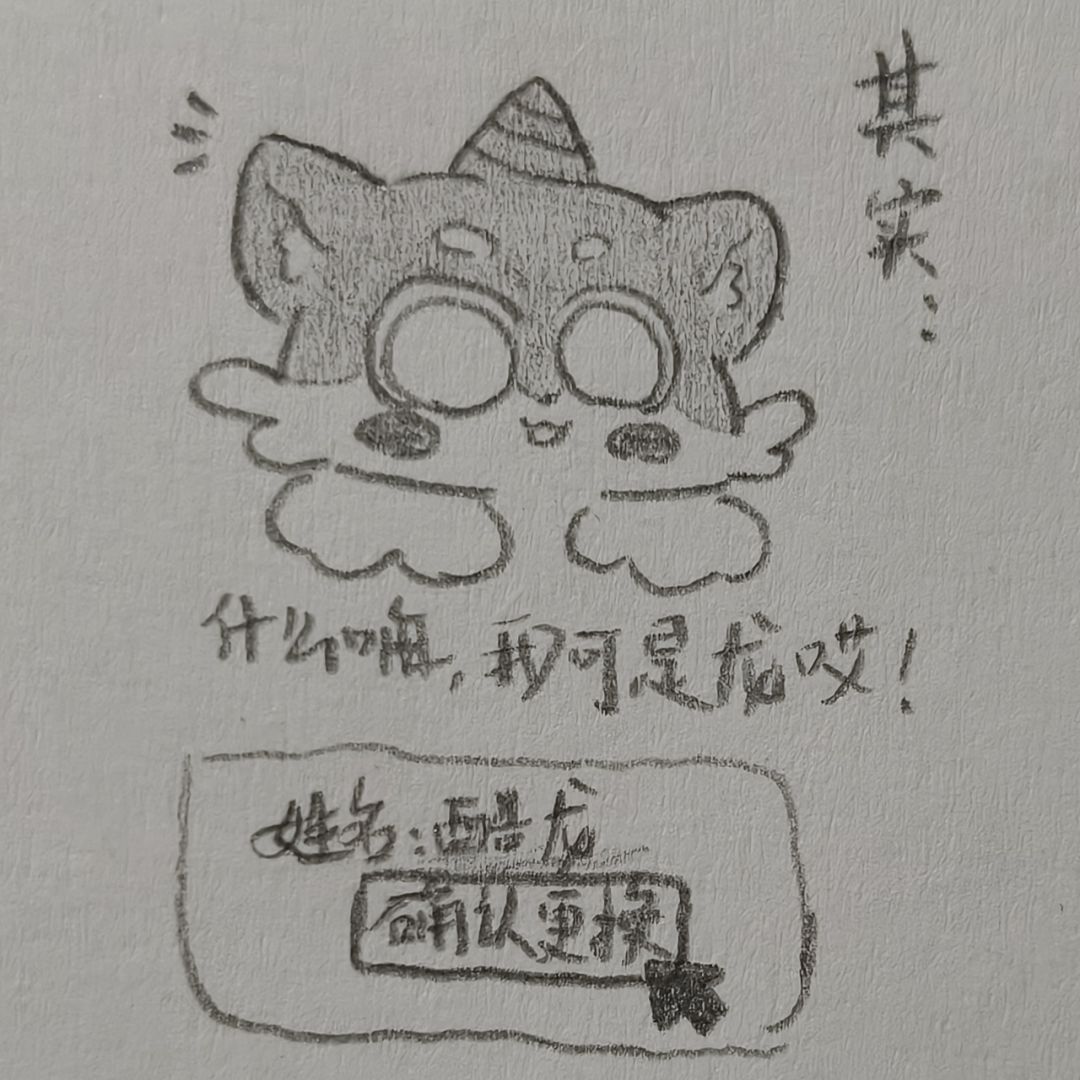 其实…
什么嘛,我可是龙哎!
姓名:酷龙
确认更换